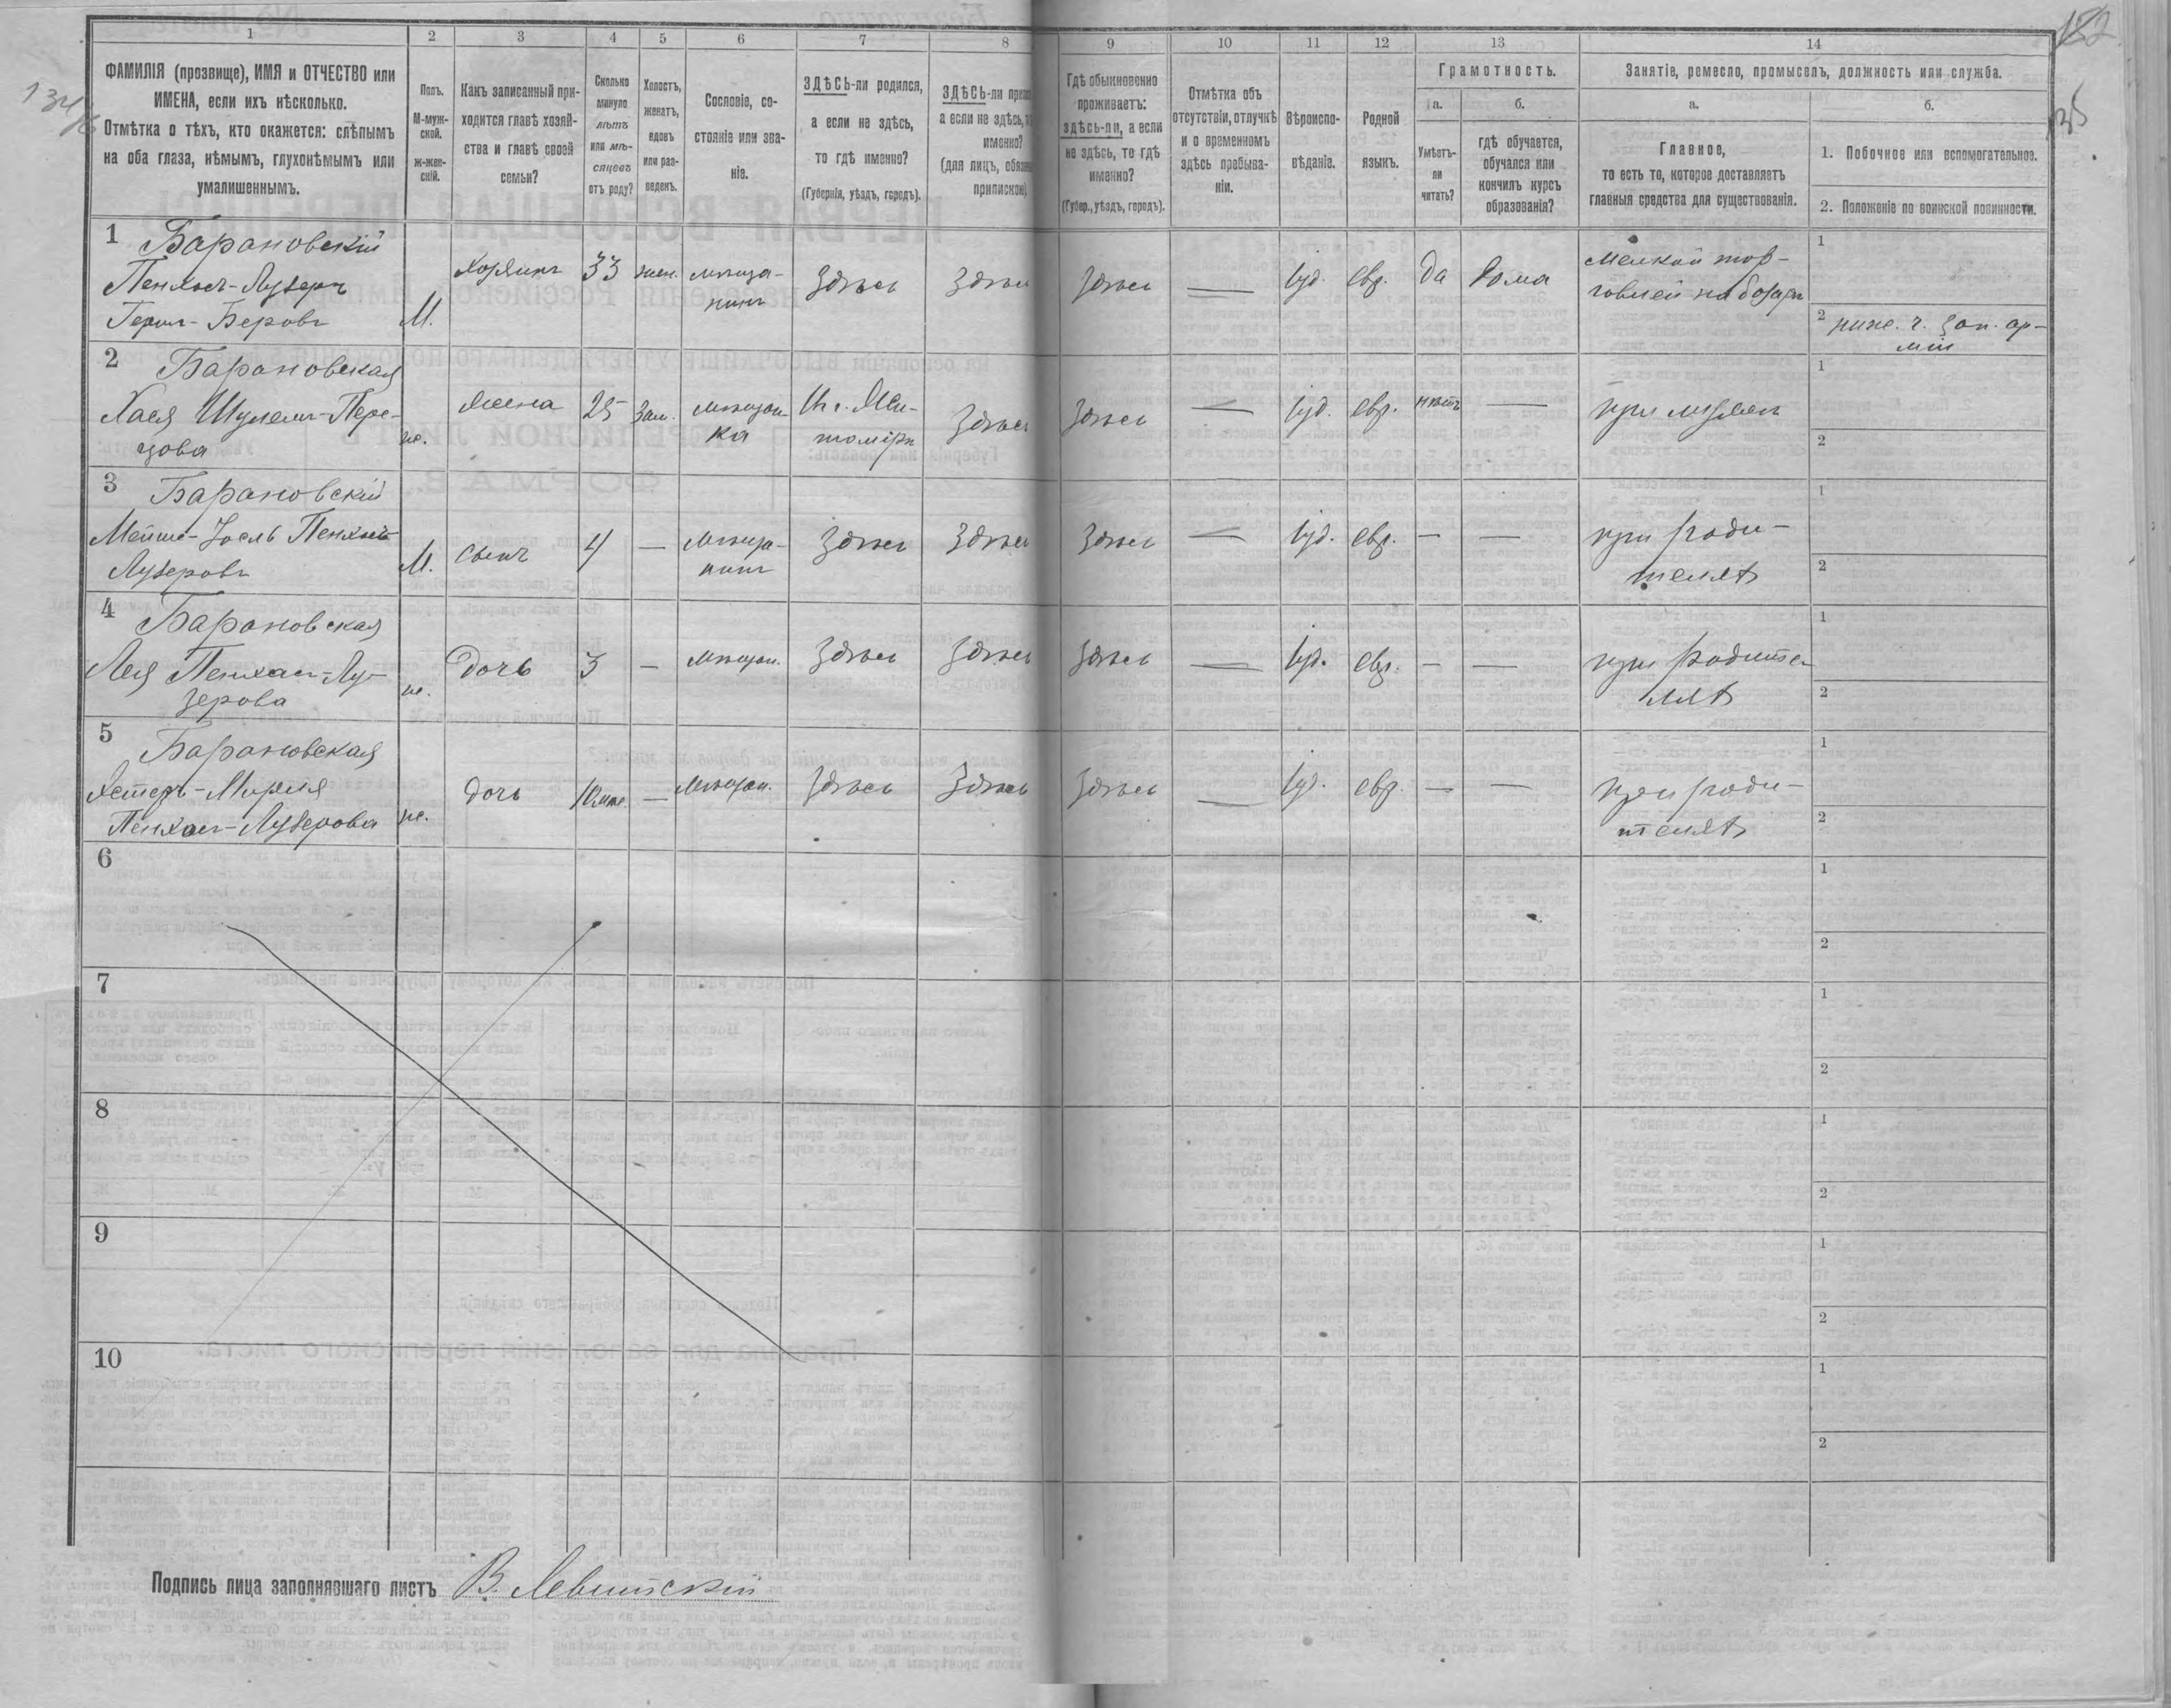 182
134/6
35
1
2
3
4
5
6
7
8
9
10
11
12
13
14
ФАМИЛІЯ (прозвище), ИМЯ и ОТЧЕСТВО или
ИМЕНА, если ихъ нѣсколько.
Отмѣтка о тѣхъ, кто окажется: слѣпымъ
на оба глаза, нѣмымъ, глухонѣмымъ или
умалишеннымъ.
Полъ.
М-муж-
ской.
ж-жен-
скій.
Какъ записанный при-
ходится главѣ хозяй-
ства и главѣ своей
семьи?
Сколько
минуло
лѣтъ
или мѣ-
сяцевъ
отъ роду?
Холостъ,
женатъ,
вдовъ
или раз-
веденъ.
Сословіе, со-
стояніе или зва-
ніе.
ЗДѢСЬ-ли родился,
а если не здѣсь,
то гдѣ именно?
(Губернія, уѣздъ, городъ).
ЗДѢСЬ-ли
а если не здѣсь,
именно?
(для лицъ,
припискою)
Гдѣ обыкновенно
проживаетъ:
здѣсь-ли, а если
не здѣсь, то гдѣ
именно?
(Губер., уѣздъ, городъ).
Отмѣтка объ
отсутствіи, отлучкѣ
и о временномъ
здѣсь пребыва-
ніи.
Вѣроиспо-
вѣданіе.
Родной
языкъ.
Грамотность.
а.
Умѣетъ-
ли
читать?
б.
гдѣ обучается,
обучался или
кончилъ курсъ
образованія?
Занятіе, ремесло, промыселъ, должность или служба.
а.
Главное,
то есть то, которое доставляетъ
главныя средства для существованія.
б.
1. Побочное или вспомогательное.
2. Положеніе по воинской повинности.
1 Барановскій
Пенхасъ-Лузеръ
Гершъ-Беровъ
М.
Хозяинъ
33
жен.
мѣща-
нинъ
Здѣсь
Здѣсь
Здѣсь
—
Іуд.
евр.
да
дома
Мелкой тор-
говлей на базарѣ
1
2 ниж. ч. зап. ар-
міи
2 Барановская
Хася Шулемъ-Пере-
цова
ж.
Жена
25
Зам.
мѣщан-
ка
Въ г. Жи-
томірѣ
Здѣсь
Здѣсь
—
Іуд.
евр.
нѣтъ
—
при мужѣ
1
2
3 Барановскій
Мейше-Іосль Пенхасъ-
Лузеровъ
М.
сынъ
4
—
мѣща-
нинъ
Здѣсь
Здѣсь
Здѣсь
—
Іуд.
евр.
—
—
при роди-
теляхъ
1
2
4 Барановская
Лея Пенхасъ-Лу-
зерова
ж.
Дочь
3
—
мѣщан.
Здѣсь
Здѣсь
Здѣсь
—
Іуд.
евр.
—
—
при родите-
ляхъ
1
2
5 Барановская
Хстеръ-Мирля
Пенхасъ-Лузерова
ж.
дочь
—
Мѣщан.
Здѣсь
Здѣсь
Здѣсь
—
Іуд.
евр.
—
—
при роди-
теляхъ
1
2
6
1
2
7
1
2
8
1
2
9
1
2
10
1
2
Подпись лица заполнявшаго листъ